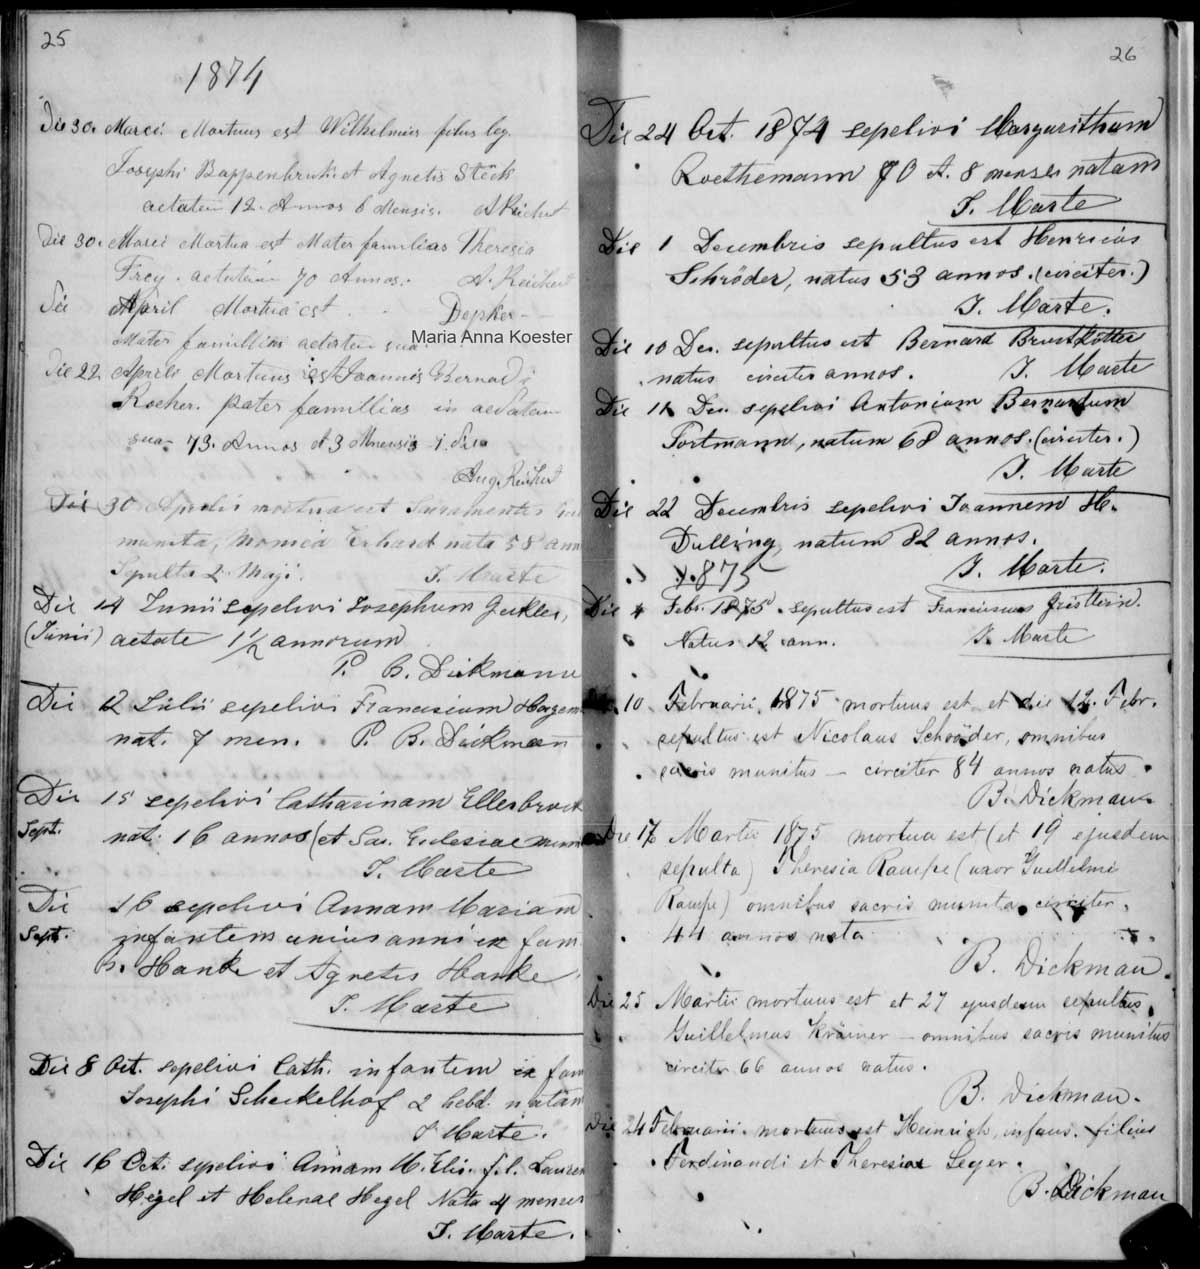 25
1874
Die 30. Marci Mortuus est Wilhelmus filius leg.
Josephi Bappenbruk et Agnetis Stëck
aetatem 12. Annos 6 Mensis. A Reichert
Die 30. Marci Mortua est Mater familias Theresia
Frey. aetatem 70 Annos. A. Reichert
Die April Mortua est Depker
Mater familias aetatem sua
Maria Anna Koester
Die 22 Aprili Mortuus est Joannis Bernad
Rocher. pater famillias in aetatem
sua 73. Annos et 3 Mnensis
Aug Reichert
Die 30 Aprilis mortua est Sacramentis
munita, Monica Erhardt nata 58 ann
Sepulta 2. Maji. J. Marte
Die 14 Junii sepelivi Josephum Geckler,
(Junii) aetate 1 1/2 annorum
P. B. Dickmann
Die 12 Julii sepelivi Franciscum Hagem
nat. 7 men. P. B. Dickmann
Die 15 sepelivi Catharinam Ellerbrock
Sept. nat. 16 annos (et Sac. Ecclesiae
J. Marte
Die 16 sepelivi Annam Mariam
Sept. infantem unius anni ex fam
B. Hanke et Agnetis Hanke
J. Marte
Die 8 Oct. sepelivi Cath. infantem ex fam
Josephi Scheckelhof 2 hebd. natam
J Marte.
Die 16 Oct. sepelivi Annam M. Elis. fil. Lauren
Hegel et Helenae Hegel Nata 4 menses
J. Marte.
26
Die 24 Oct. 1874 sepelivi Margaritham
Roethemann 70 A. 8 menses natam
J. Marte
Die 1 Decembris sepultus est Henricus
Schröder, natus 53 annos. (circiter.)
J. Marte.
Die 10 Dec. sepultus est Bernard Brustkötter
natus circiter annos. J. Marte
Die 11 Dec. sepelivi Antonium Bernardum
Fortmann, natum 68 annos. (circiter.)
J. Marte
Die 22 Decembris sepelivi Joannem H.
Dulling, natum 82 annos.
1875 J. Marte.
Die 4 Febr. 1875 sepultus est Franciscus
Natus 12 ann. J. Marte
Die 10 Februarii 1875 mortuus est et die 12. Febr.
sepultus est Nicolaus Schröder, omnibus
sacris munitus – circiter 84 annos natus.
B. Dickman.
Die 17 Martii 1875 mortua est (et 19 ejusdem
sepulta) Theresia Rampe (uxor Guillelmi
Rampe) omnibus sacris munita circiter.
44 annos nata
B. Dickman.
Die 25 Martii mortuus est et 27 ejusdem sepultus
Guillelmus Krämer – omnibus sacris munitus
circiter 66 annos natus.
B. Dickman.
Die 24 Februarii. mortuus est Heinrich, infans. filius
Ferdinandi et Theresiae Leyer.
B. Dickman